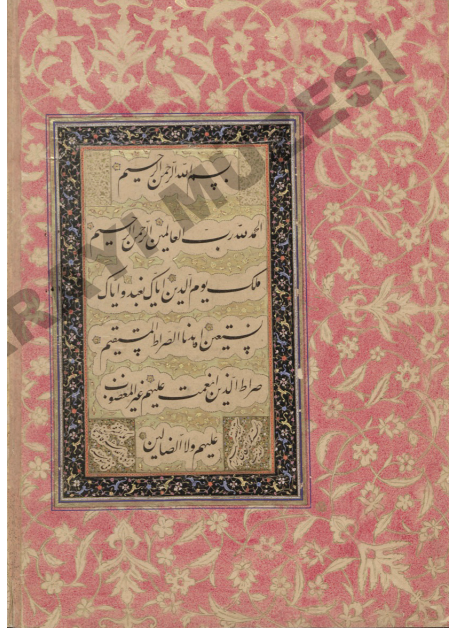 بسم الله الرحمن الرحیم
الحمد لله رب العالمین الرحمن الرحیم
ملک یوم الدین ایاک نعبد و ایاک
نستعین اهدنا الصراط المستقیم
صراط الذین انعمت علیهم غیر المغضوب
علیهم ولا الضالین
ARAYI MÜZESİ